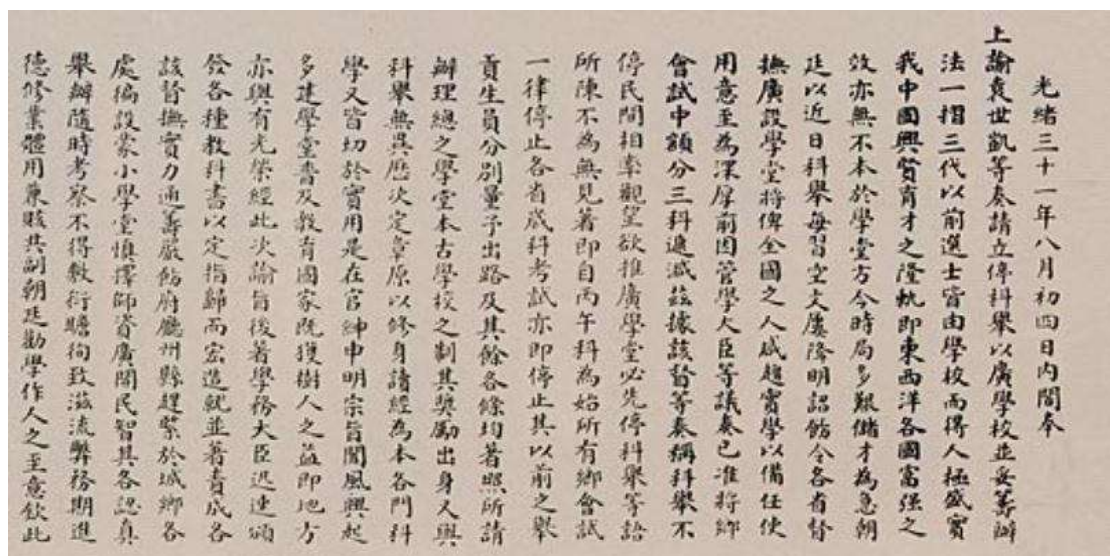 光緒三十一年八月初四日內閣奉
上諭袁世凱等奏請立停科舉以廣學校並妥籌辦
法一摺三代以前選士皆由學校而得人極盛實
我中國興賢育才之隆軌即東西洋各國富强之
效亦無不本於學堂方今時局多艱儲才為急朝
廷以近日科舉每習空文屢降明詔飭令各省督
撫廣設學堂將俾全國之人咸趨實學以備任使
用意至為深厚前因管學大臣等議奏已准將鄉
會試中額分三科遞減兹據該督等奏稱科舉不
停民間相率觀望欲推廣學堂必先停科舉等語
所陳不為無見著即自丙午科為始所有鄉會試
一律停止各省歲科考試亦即停止其以前之舉
貢生員分別量予出路及其餘各條均著照所請
辦理總之學堂本古學校之制其奬勵出身又與
科舉無異歷次定章原以修身讀經為本各門科
學又皆切於實用是在官紳申明宗旨聞風興起
多建學堂普及教育國家既獲樹人之益即地方
亦與有光榮經此次諭旨後著學務大臣迅速頒
發各種教科書以定指歸而宏造就並著責成各
該督撫實力通籌嚴飭府廳州縣趕緊於城鄉各
處徧設蒙小學堂慎擇師資廣開民智其各認真
舉辦隨時考察不得敷衍瞻徇致滋流弊務期進
德修業體用兼賅共副朝廷勸學作人之至意欽此